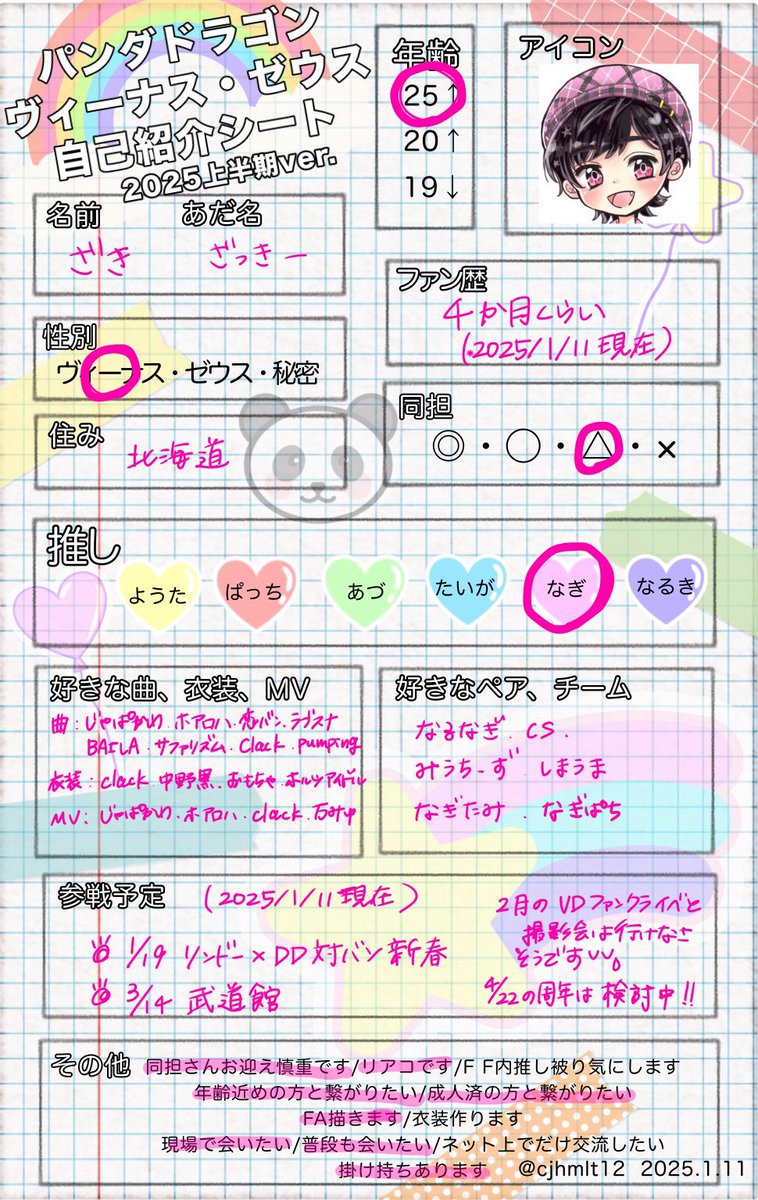 パンダドラゴン
ヴィーナス・ゼウス
自己紹介シート
2025上半期ver.
年齢
25↑
20↑
19↓
アイコン
名前 あだ名
ざき ざっきー
ファン歴
4か月くらい
(2025/1/11現在)
性別
ヴィーナス・ゼウス・秘密
同担
◎・○・△・×
住み
北海道
推し
ようた ぱっち あづ たいが なぎ なるき
好きな曲、衣装、MV
曲:じゃぱかり.ホアロハ.恋バン.ラブスナ
BAILA.サファリズム.Clack.pumping
衣装:clack.中野黒.おもちゃ.ホルツアイドル
MV:じゃぱかり.ホアロハ.clack.
好きなペア、チーム
なるなぎ.CS.
みうちーず.しまうま
なぎたみ.なぎぱち
参戦予定 (2025/1/11現在)
1/19 リンドー×DD対バン新春
3/14 武道館
2月のVDファンクライベと
撮影会は行けなさ
そうです
4/22の周年は検討中!!
その他 同担さんお迎え慎重です/リアコです/FF内推し被り気にします
年齢近めの方と繋がりたい/成人済の方と繋がりたい
FA描きます/衣装作ります
現場で会いたい/普段も会いたい/ネット上でだけ交流したい
掛け持ちあります @cjhmlt12 2025.1.11